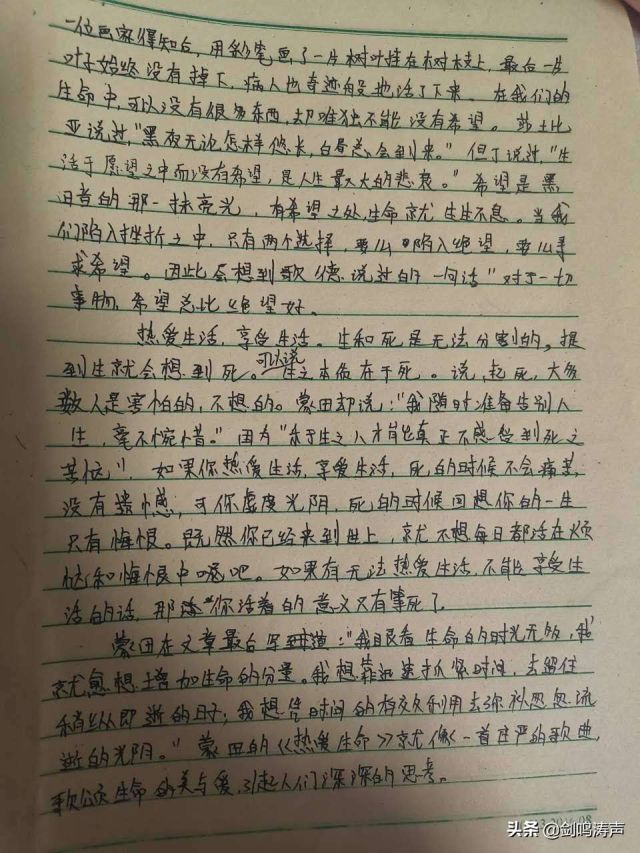 一位画家得知后，用彩笔画了一片树叶挂在树枝上，最后一片
叶子始终没有掉下，病人也奇迹般地活了下来。在我们的
生命中，可以没有很多东西，却唯独不能没有希望。莎士比
亚说过，"黑夜无论怎样悠长，白昼总会到来。"但丁说过，"生
活于愿望之中而没有希望，是人生最大的悲哀。"希望是黑
暗者的那一抹亮光，有希望之处，生命就生生不息。当我
们陷入挫折之中，只有两个选择，要么陷入绝望，要么寻
求希望。因此会想到歌德说过的一句话"对于一切
事物，希望总比绝望好。
热爱生活，享受生活。生和死是无法分割的。提
到生就会想到死。可以说生之本质在于死。说起死，大多
数人是害怕的，不想的。蒙田却说："我随时准备告别人
生，毫不惋惜。"因为"乐于生之人才能真正不感受到死之
苦恼"，如果你热爱生活，享受生活，死的时候不会痛苦，
没有遗憾，可你虚度光阴，死的时候回想你的一生
只有悔恨。既然你已经来到世上，就不想每日都活在烦
恼和悔恨中吧。如果有无法热爱生活，不能享受生
活的话，那你活着的意义只有等死了。
蒙田在文章最后写到道："我眼看生命的时光无多，我
就愈想增加生命的分量。我想靠迅速抓紧时间，去留住
稍纵即逝的日子；我想凭时间的有效利用去弥补匆匆流
逝的光阴。"蒙田的《热爱生命》就像一首庄严的歌曲，
歌颂生命的美与爱，引起人们深深的思考。
头条@剑鸣涛声